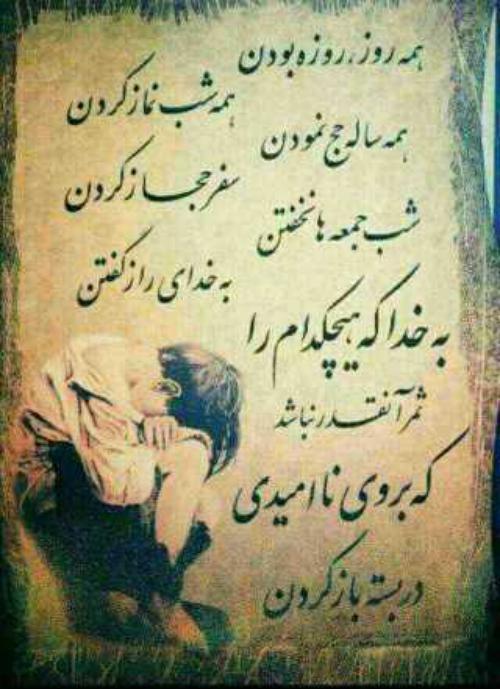 همه روز، روزه بودن
همه شب نماز کردن
همه ساله حج نمودن
سفر حجاز کردن
شب جمعه ها نخفتن
به خدای راز گفتن
به خدا که هیچکدام را
ثمر آنقدر نباشد
که بروی ناامیدی
در بسته باز کردن